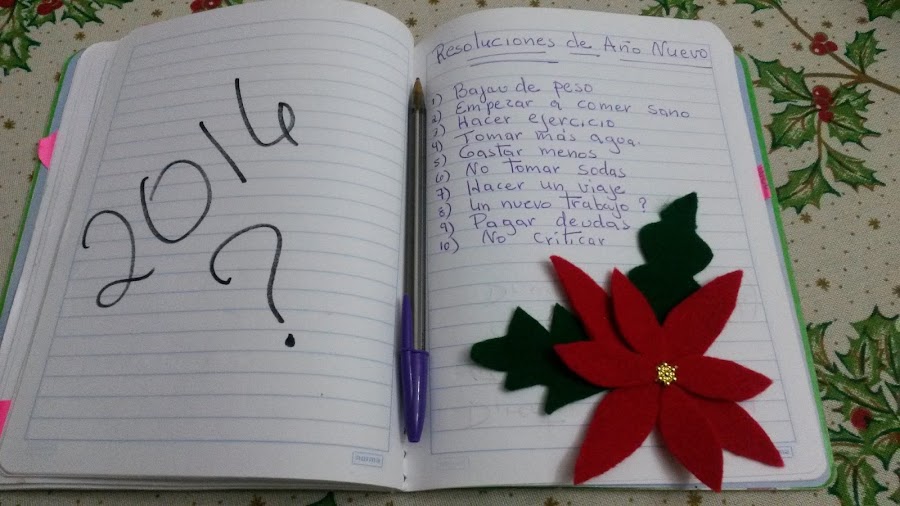 2014
?
Resoluciones de Año Nuevo
1) Bajar de peso
2) Empezar a comer sano
3) Hacer ejercicio
4) Tomar más agua.
5) Gastar menos
6) No tomar sodas
7) Hacer un viaje
8) Un nuevo trabajo?
9) Pagar deudas
10) No criticar